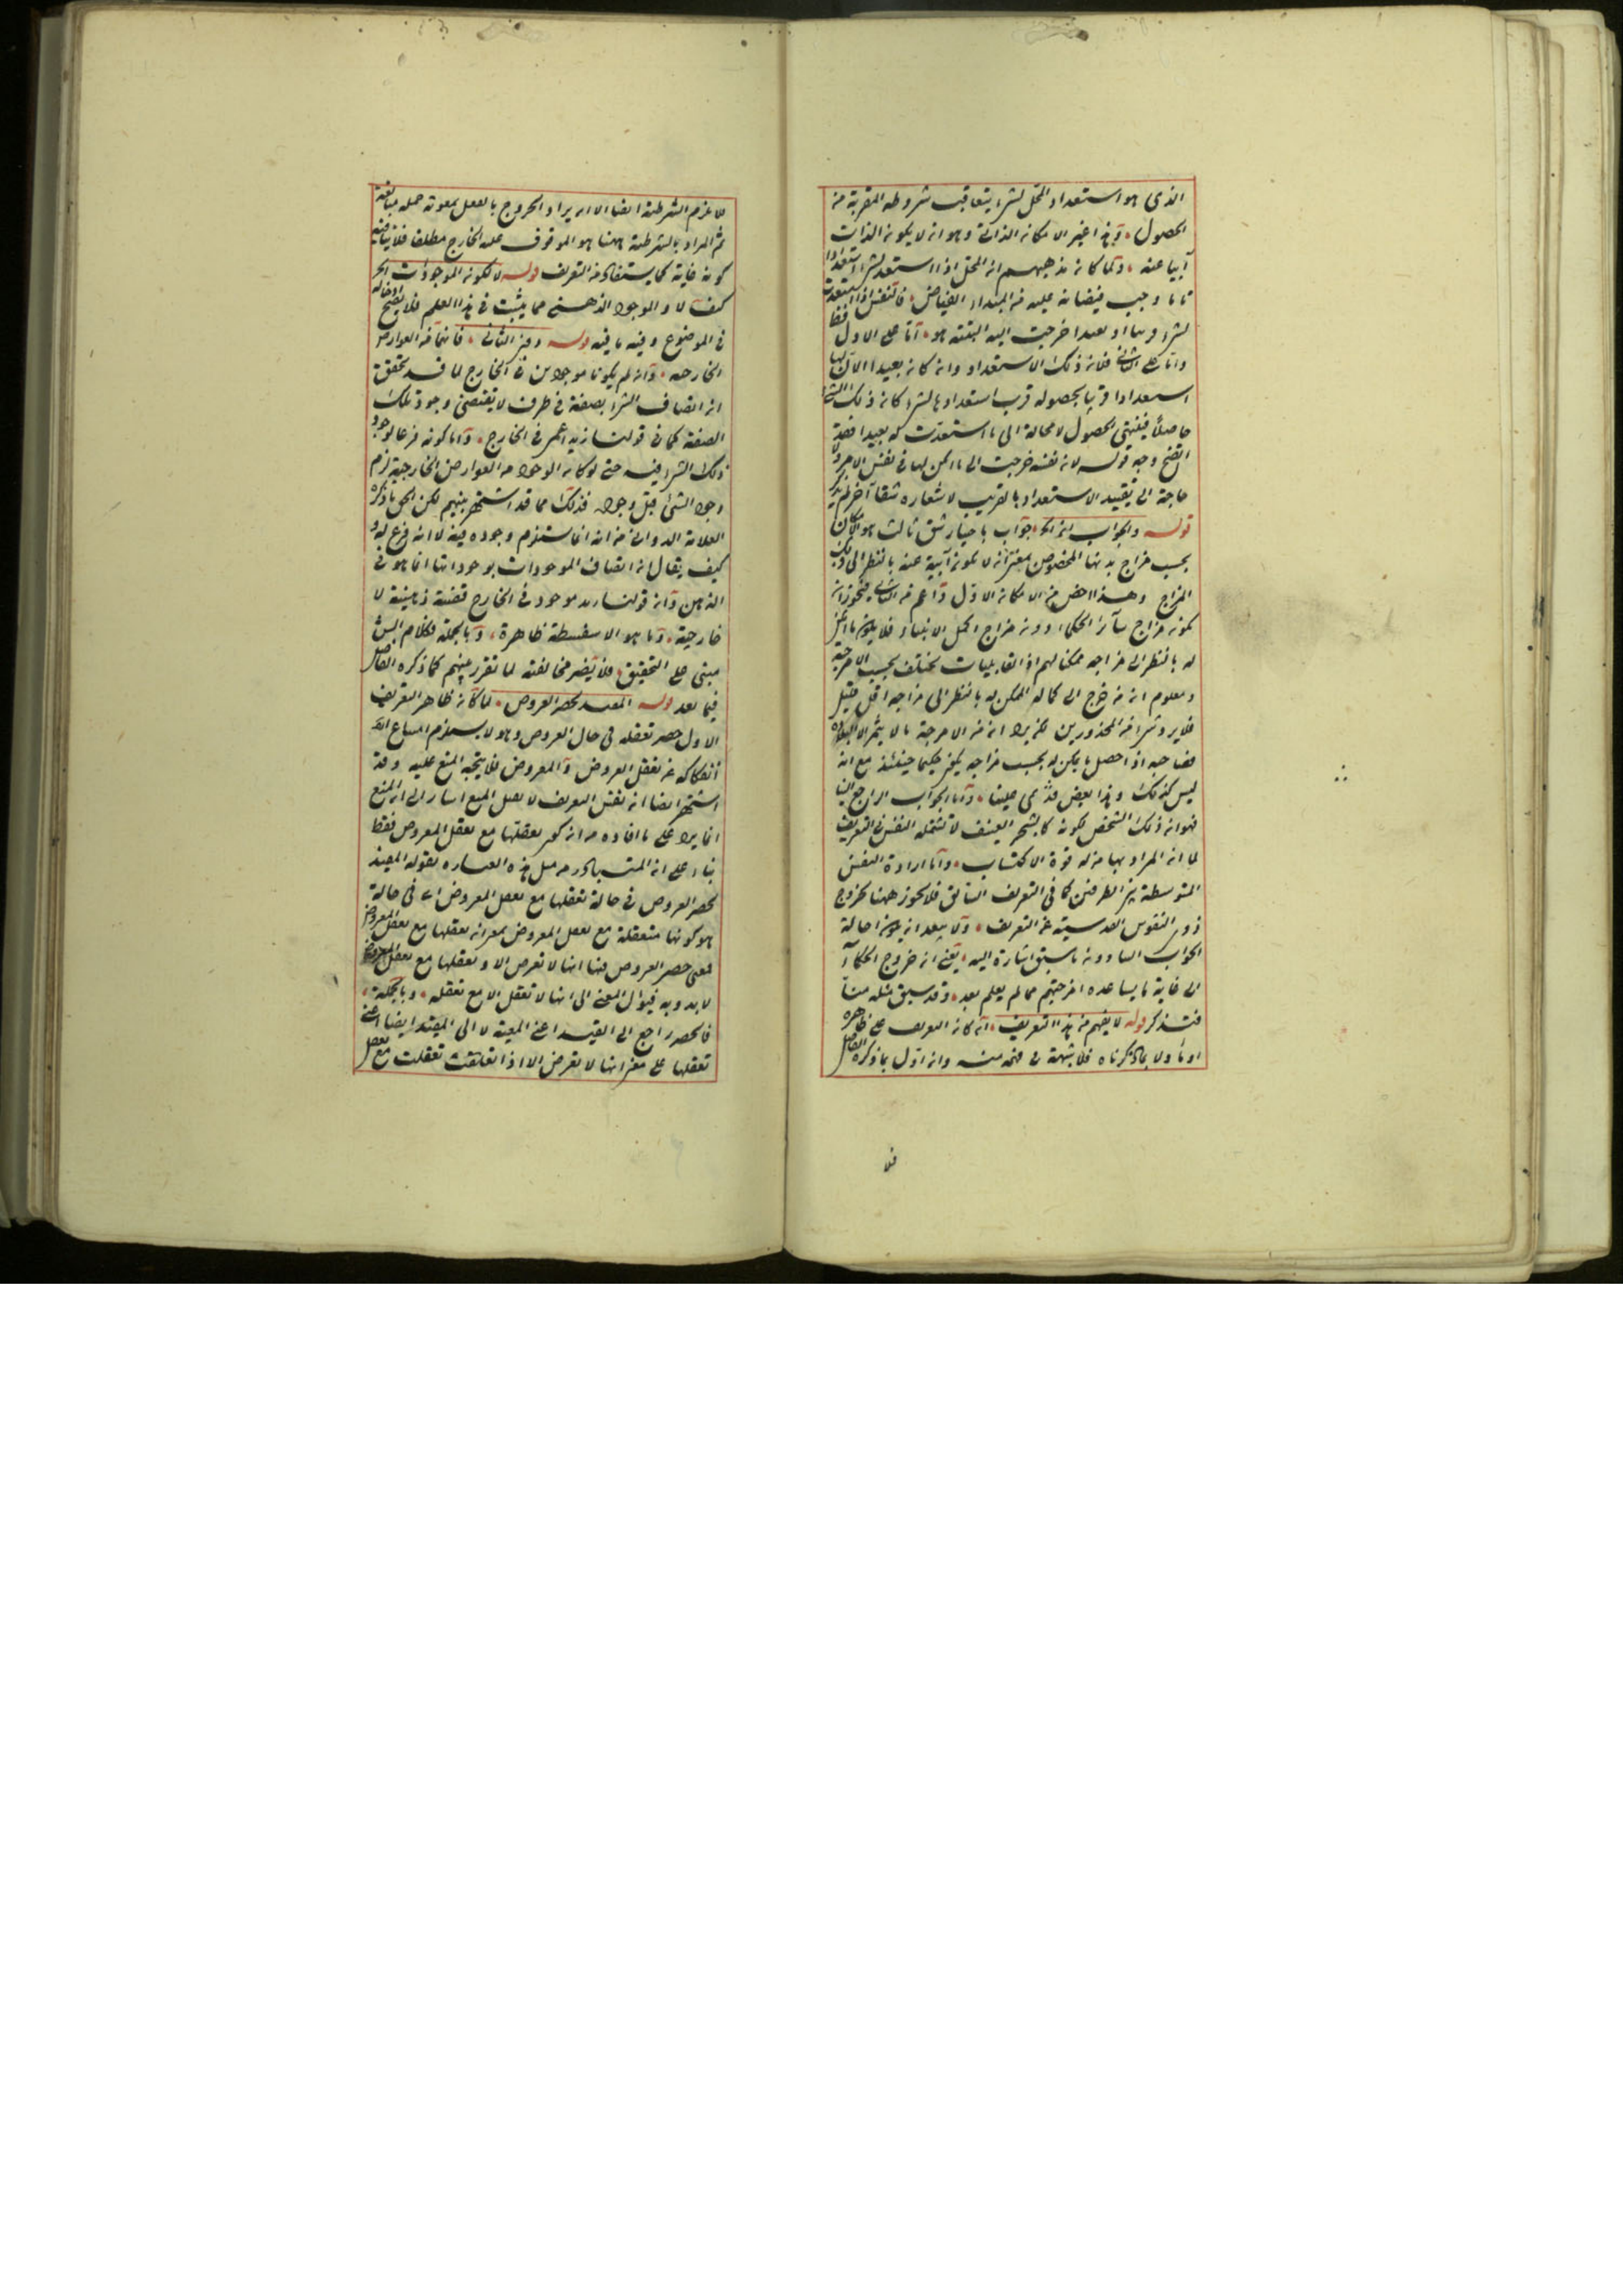 الذى هو استعداد المحل لشىء يتعاقب شروطه المقربة من
الحصول وهذا غير الامكان الذاتى وهو ان لا يكون الذات
آبيا عنه ولما كان مذهبهم ان المحل اذا استعد لشىء استعدادا
تاما وجب فيضانه عليه من المبداء الفياض فالنفس اذا استعدت
لشىء قريبا او بعيدا خرجت اليه البتة اما على الاول فظ
واما على الثانى فلان ذلك الاستعداد وان كان بعيدا الا ان لها
استعدادا قريبا بحصوله قرب استعدادها لشىء كان ذلك الشىء
حاصلا فينتهى الحصول لا محالة الى ما استعدت له بعيدا فقد
اتضح وجه قوله لان نفسه خرجت الى ما امكن لها فى نفس الامر ولا
حاجة الى تقييد الاستعداد بالقريب لاشعاره شقا آخر لم يذكر
قوله والجواب انه الخ جواب باختيار شق ثالث هو الامكان
بحسب مزاج بدنها المخصوص بمعنى انه لا يكون آبية عنه بالنظر الى ذلك
المزاج وهذا اخص من الامكان الاول واعم من الثانى فيجوز ان
يكون مزاج سائر الحكماء دون مزاج اكمل الانبياء فلا يكون ما امكن
له بالنظر الى مزاجه ممكنا لهم اذ القابليات تختلف بحسب الامزجة
ومعلوم ان من خرج الى كماله الممكن له بالنظر الى مزاجه اقل قليل
فلا يرد شىء من المحذورين لكن يرد ان من الامزجة ما لا يثمر الا البلادة
فصاحبه اذا حصل ما يمكن له بحسب مزاجه يكون حكيما حينئذ مع انه
ليس كذلك وهذا بعض قدمى علينا واما الجواب الراجع الينا
فهو ان ذلك الشخص لكونه كالشجر العنيف لا تشتمله النفس فى التعريف
لما ان المراد بها من له قوة الاكتساب واما ارادة النفس
المتوسطة بين الطرفين كما فى التعريف السابق فلا يجوز ههنا لخروج
ذوى النفوس القدسية عن التعريف ولا يبعد ان يكون احالة
الجواب الى ما سبق اشارة اليه يعنى ان خروج الحكماء
الى غاية ما يساعده امزجتهم مما لم يعلم بعد وقد سبق مثله منا
فتذكر قوله لا يفهم من هذا التعريف ان كان التعريف على ظاهره
او ماولا بما ذكرناه فلا شبهة فى فهمه منه وان اول بما ذكره الفاضل
فلا
فلا يلزم الشرطية ايضا الا ان يراد الخروج بالفعل بمعونة حمله مبالغة
ثم المراد بالشرطية ههنا هو الموقوف عليه الخارج مطلقا فلا ينافيه
كونه غاية كما يستفاد من التعريف قوله لا لكونه الموجودات الخ
كيف لا والموجود الذهنى مما يثبت فى هذا العلم فلا يصح ادخاله
فى الموضوع وفيه ما فيه قوله ومن الثانى فانهما من العوارض
الخارجية وان لم يكونا موجودين فى الخارج لما قد تحقق
ان اتصاف الشىء بصفة فى ظرف لا يقتضى وجود تلك
الصفة كما فى قولنا زيد اعمى فى الخارج واما كونه فرعا لوجود
ذلك الشىء فيه حتى لو كان الوجود من العوارض الخارجية لزم
وجود الشىء قبل وجوده فذلك مما قد اشتهر بينهم لكن الحق ما ذكره
العلامة الدوانى من انه انما يستلزم وجوده فيه لا انه فرع له و
كيف يقال ان اتصاف الموجودات بوجوداتها انما هو فى
الذهن وان قولنا زيد موجود فى الخارج قضية ذهنية لا
خارجية وما هو الا سفسطة ظاهرة وبالجملة فكلام الش
مبنى على التحقيق فلا يضر مخالفته لما تقرر بينهم كما ذكره الفاضل
فيما بعد قوله المفيد لحصر العروض لما كان ظاهر التعريف
الاول حصر تعقله فى حال العروض وهو لا يستلزم امتناع
انفكاكه عن تعقل العروض والمعروض فلا يتجه المنع عليه وقد
اشتهر ايضا ان نفس التعريف لا يقبل المنع اشار الى ان المنع
انما يرد على ما افاده من انه كون تعقلها مع تعقل المعروض فقط
بناء على ان المتبادر من مثل هذه العبارة بقوله المفيد
لحصر العروض فى حالة تعقلها مع تعقل المعروض اى فى حالة
هو كونها متعقلة مع تعقل المعروض بمعنى ان تعقلها مع تعقل المعروض
فمعنى حصر العروض فيها انها لا تعرض الا وتعقلها مع تعقل المعروض
لا بدونه فيؤل المعنى الى انها لا تعقل الا مع تعقله وبالجملة
فالحصر راجع الى القيد اعنى المعية لا الى المقيد ايضا اعنى
تعقلها على معنى انها لا تعرض الا اذا تعلقت تعقلت مع تعقل